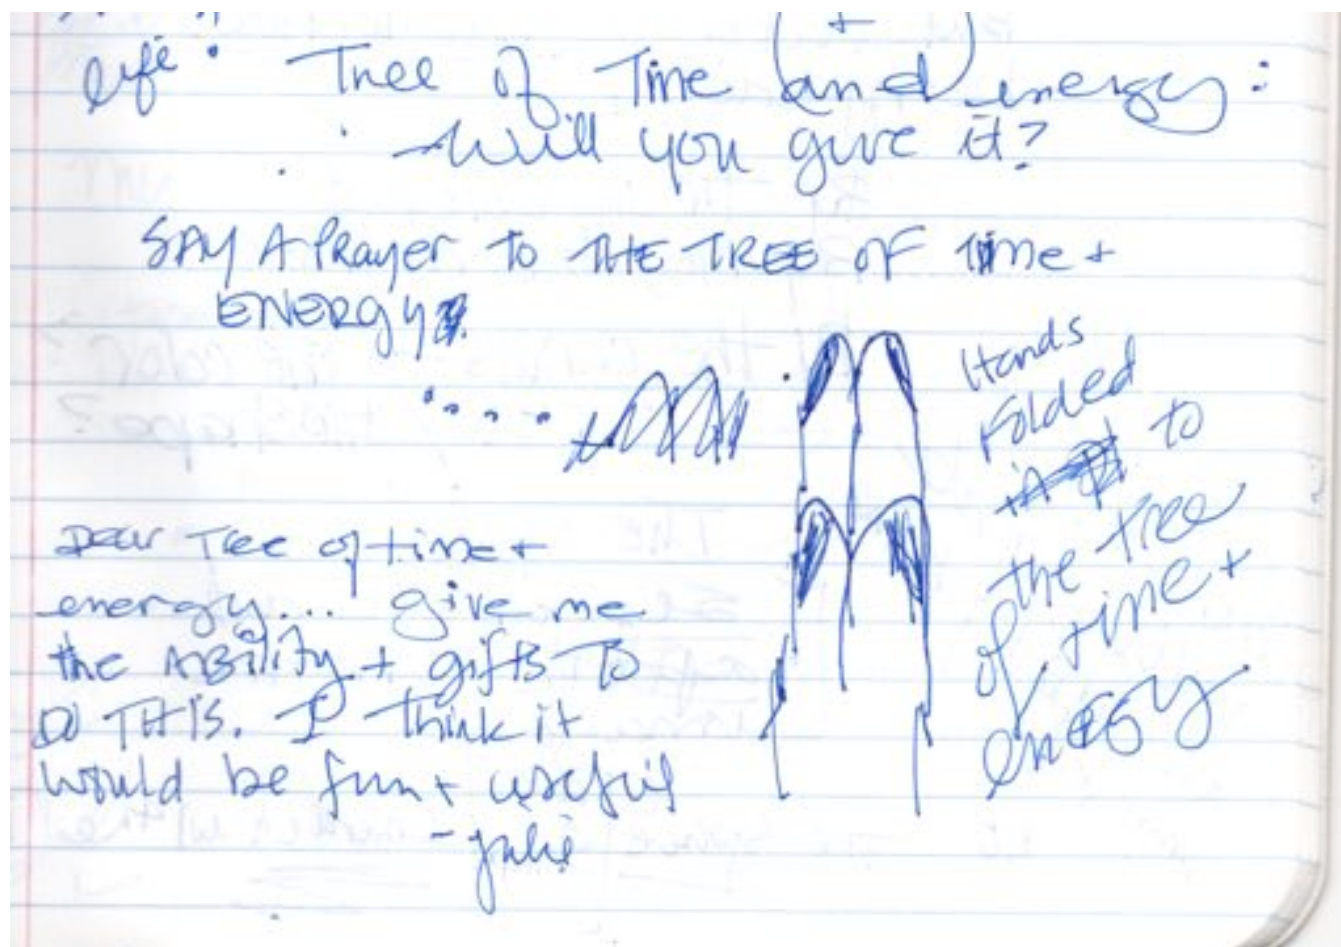 life: Tree of Time and energy:
+
will you give it?
SAY A Prayer TO THE TREE OF TIme +
ENERGY.
Hands
Folded
to
the tree
of time +
energy
Dear Tree of time +
energy... give me
the ABility + gifts TO
DO THIS. I think it
would be fun + useful
- julie